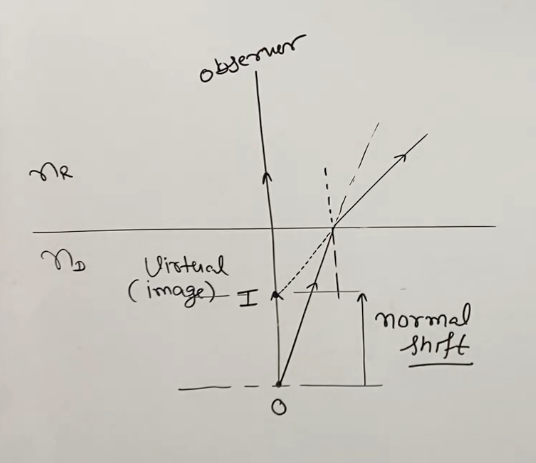 observer
n_R
n_D
Virtual
(image)
I
normal
shift
O